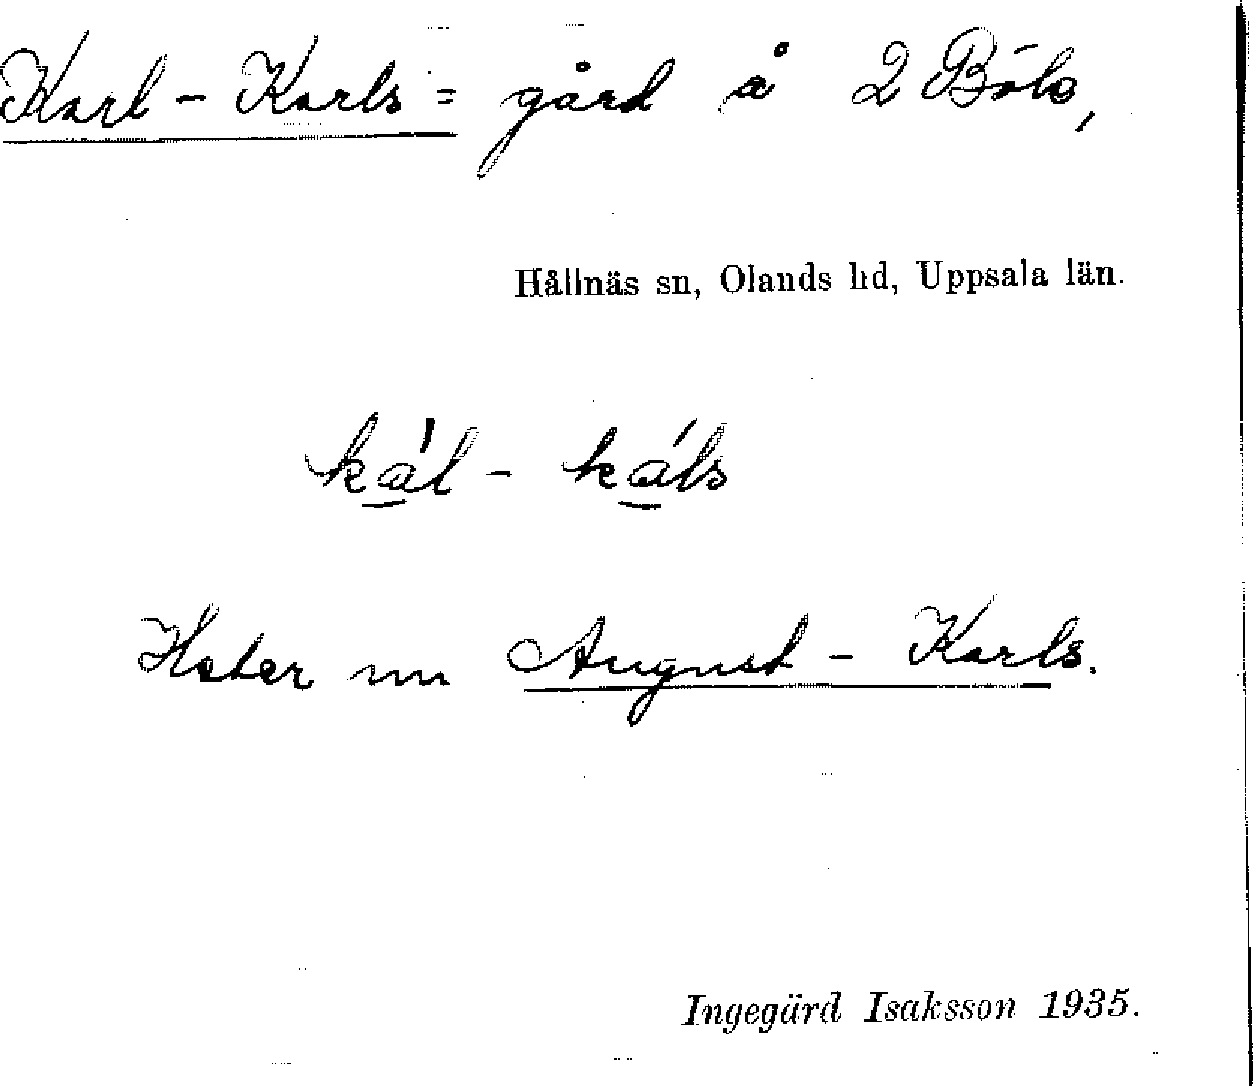 Karl-Karls = gård å 2 Böle,
Hållnäs sn, Olands hd, Uppsala län.
kál - káls
Heter nu August-Karls.
Ingegärd Isaksson 1935.